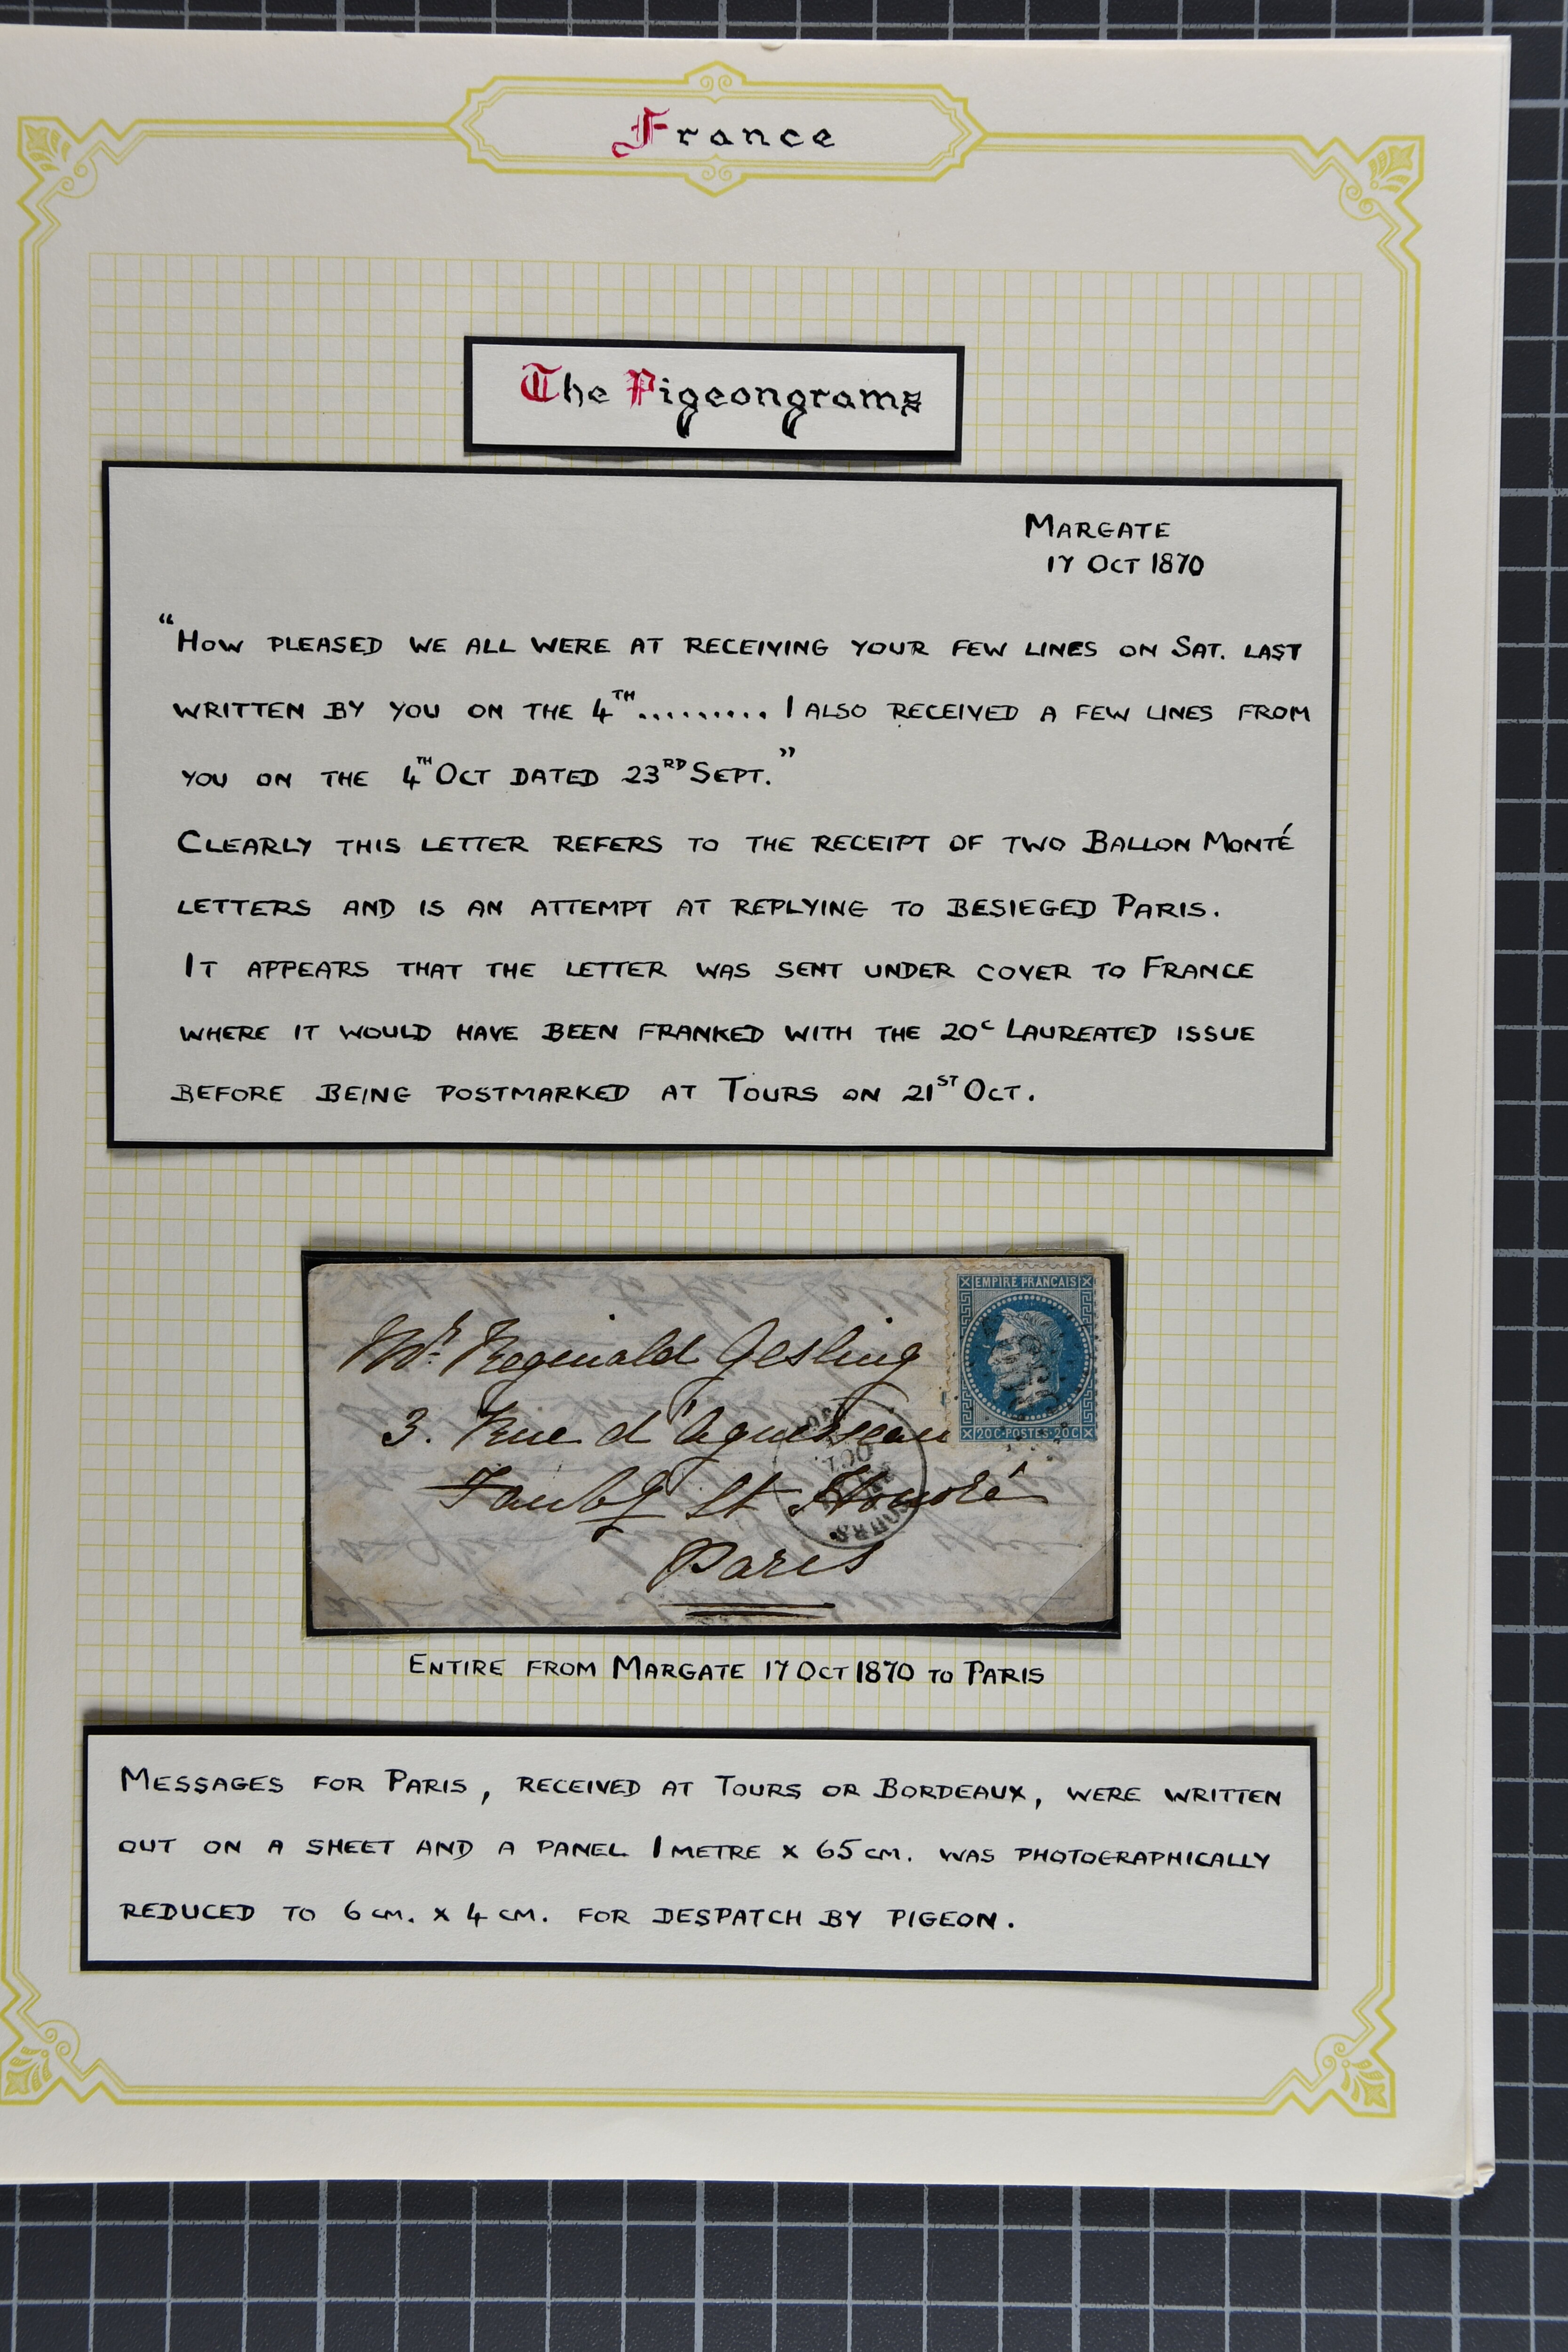 France
The Pigeongrams
MARGATE
17 OCT 1870
“HOW PLEASED WE ALL WERE AT RECEIVING YOUR FEW LINES ON SAT. LAST
WRITTEN BY YOU ON THE 4TH.......... I ALSO RECEIVED A FEW LINES FROM
YOU ON THE 4TH OCT DATED 23RD SEPT.”
CLEARLY THIS LETTER REFERS TO THE RECEIPT OF TWO BALLON MONTÉ
LETTERS AND IS AN ATTEMPT AT REPLYING TO BESIEGED PARIS.
IT APPEARS THAT THE LETTER WAS SENT UNDER COVER TO FRANCE
WHERE IT WOULD HAVE BEEN FRANKED WITH THE 20C LAUREATED ISSUE
BEFORE BEING POSTMARKED AT TOURS ON 21ST OCT.
EMPIRE FRANCAIS
20C·POSTES·20C
Mr. Reginald Gesling
3. Rue d'Aguesseau
Faubg St Honoré
Paris
TOURS
OCT.
ENTIRE FROM MARGATE 17 OCT 1870 TO PARIS
MESSAGES FOR PARIS, RECEIVED AT TOURS OR BORDEAUX, WERE WRITTEN
OUT ON A SHEET AND A PANEL 1 METRE X 65 CM. WAS PHOTOGRAPHICALLY
REDUCED TO 6 CM. X 4 CM. FOR DESPATCH BY PIGEON.